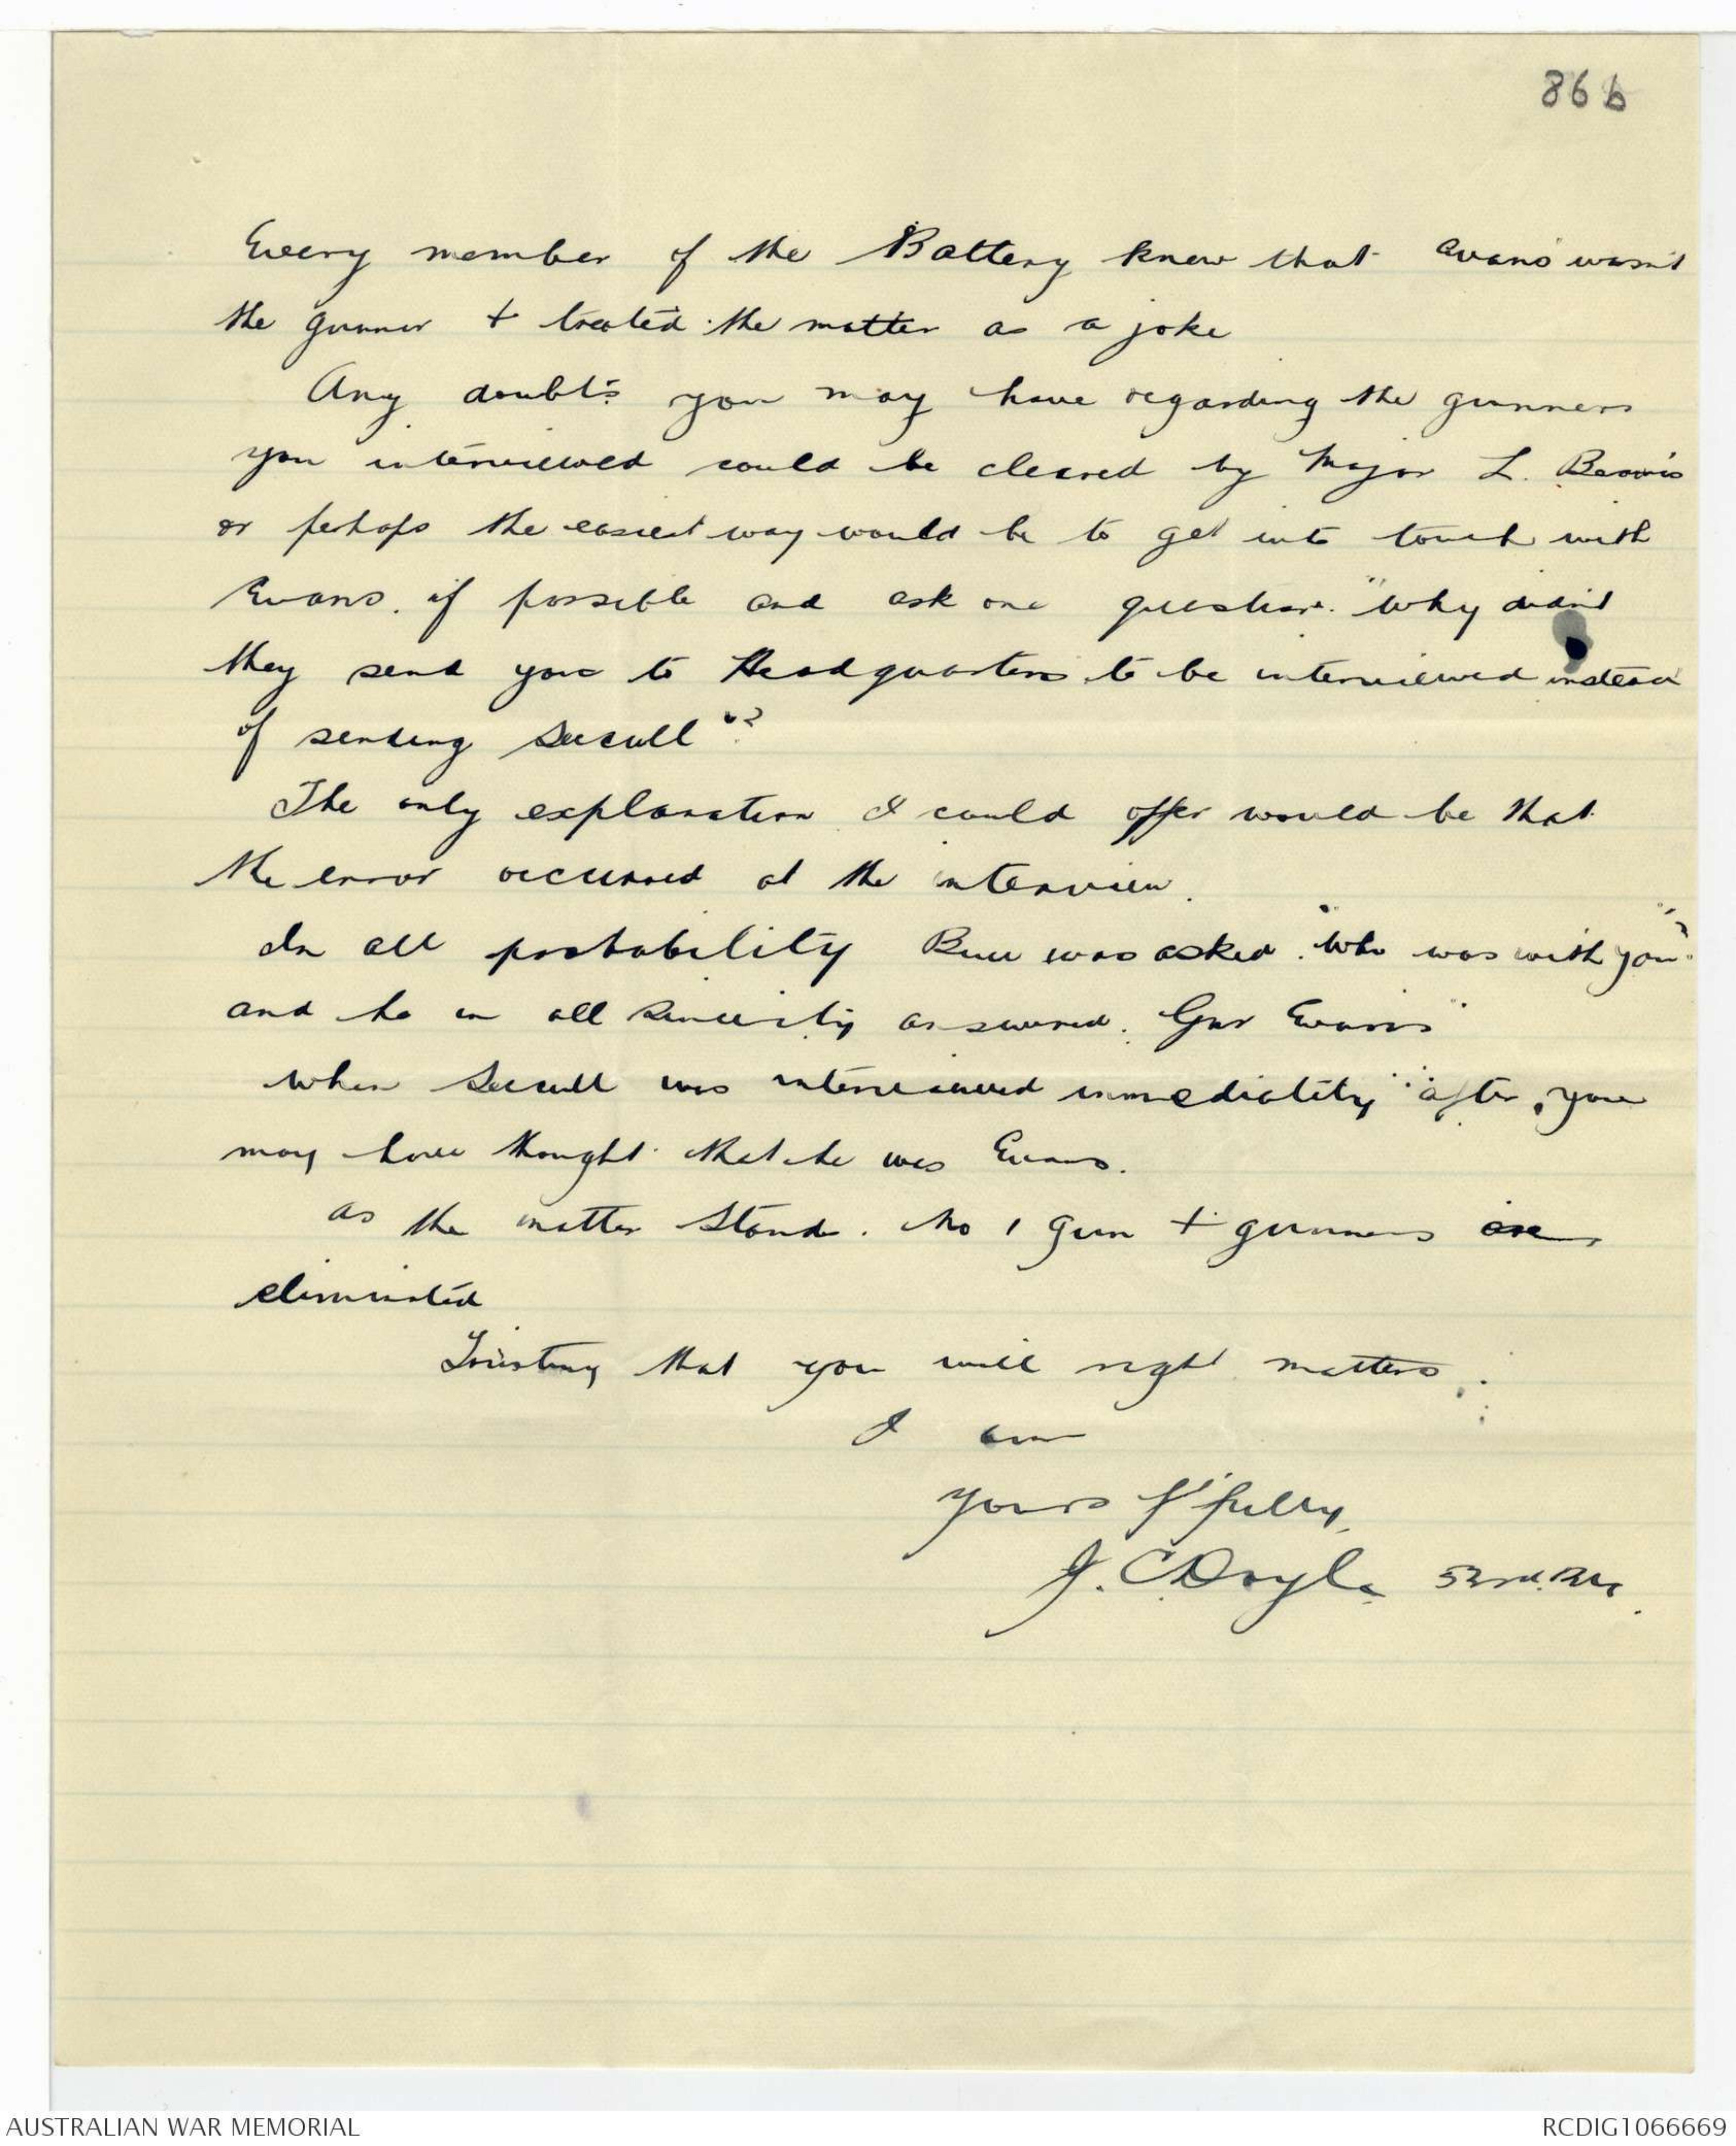 86b
Every member of the Battery knew that Evans wasn't
the gunner + treated the matter as a joke
Any doubts you may have regarding the gunners
you interviewed could be cleared by Major L. Beavis
or perhaps the easiest way would be to get into touch with
Evans. if possible and ask one question. "Why didn't
they send you to Headquarters to be interviewed instead
of sending Seccull"?
The only explanation I could offer would be that
the error occurred at the interview.
In all probability Buie was asked. "Who was with you"?
and he in all sincerity answered. "Gnr Evans"
When Seccull was interviewed immediately after, you
may have thought that he was Evans.
As the matter stands. No 1 gun + gunners are
eliminated
Trusting that you will right matters.
I am
Yours f'fully,
J. C. Doyle 53rd. Bty.
AUSTRALIAN WAR MEMORIAL
RCDIG1066669